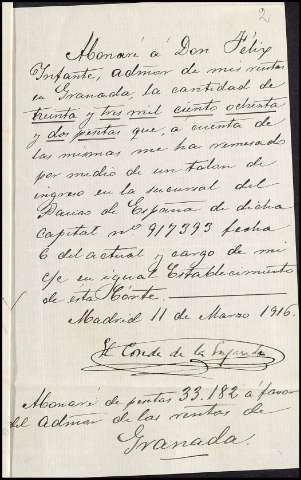 2
Abonaré á Don Félix
Infante, admor de mis rentas
en Granada, la cantidad de
treinta y tres mil ciento ochenta
y dos pesetas que, a cuenta de
las mismas me ha remesado
por medio de un talon de
ingreso en la sucursal del
Banco de España de dicha
capital nº 917393 fecha
6 del actual y cargo de mi
c/c en igual Establecimiento
de ésta Córte.
Madrid 11 de Marzo 1916.
El Conde de la
Abonaré de pesetas 33.182 á favor
del admor de las rentas de
Granada.